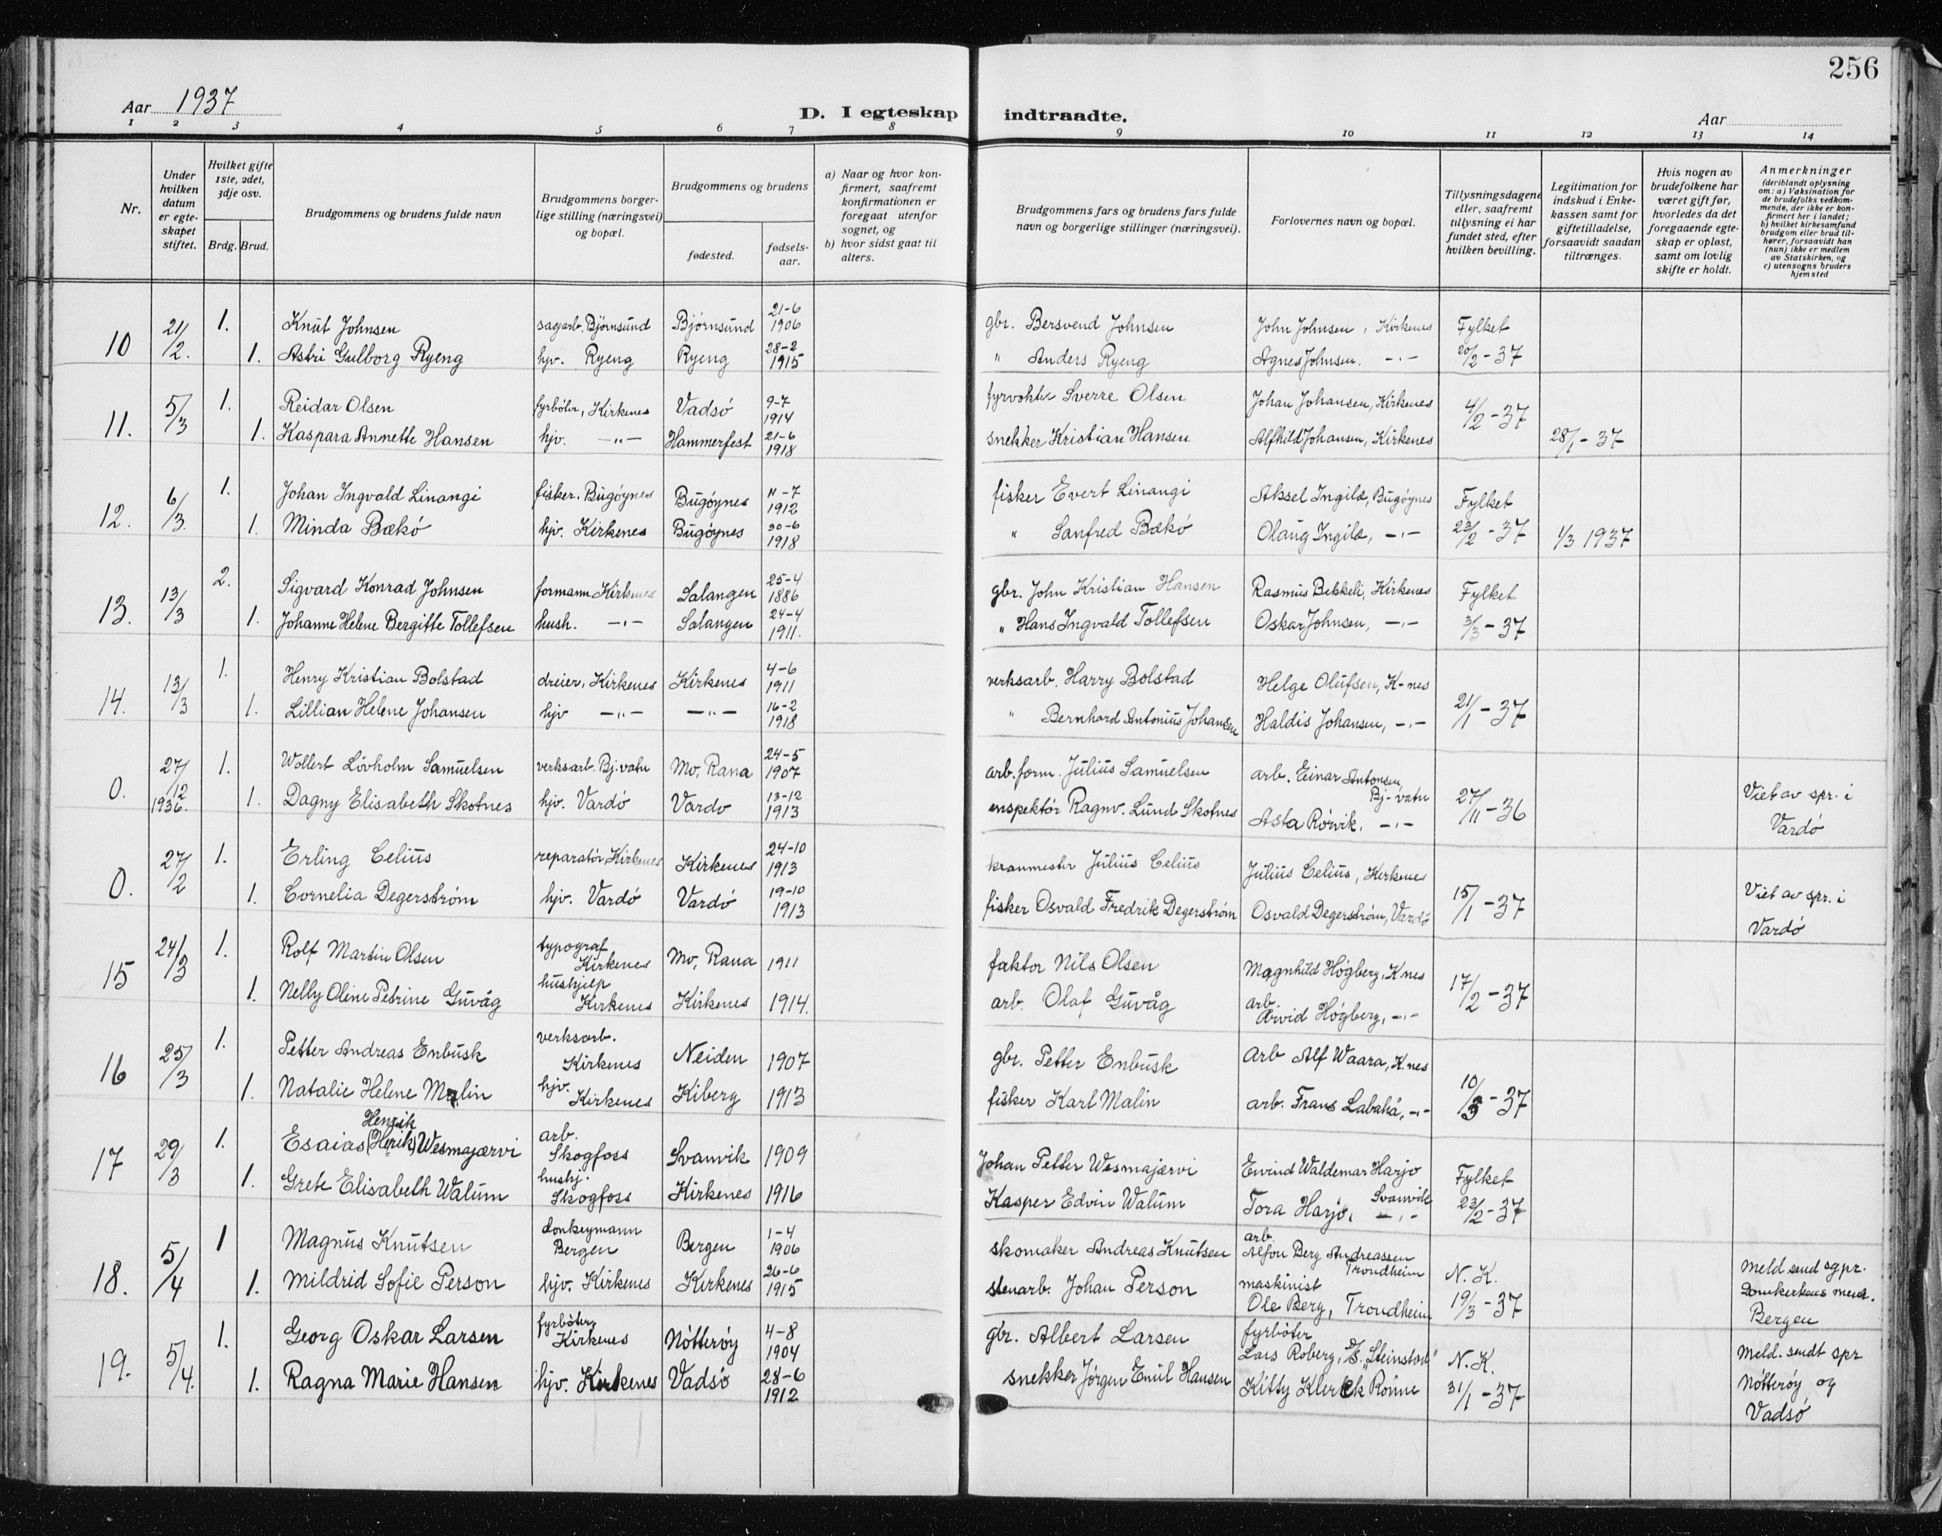 256
Aar 1937
D. I egteskap indtraadte.
Aar
1 2 3 4 5 6 7 8 9 10 11 12 13 14
Nr.
Under hvilken datum er egteskapet stiftet.
Hvilket gifte 1ste, 2det, 3dje osv.
Brdg. Brud.
Brudgommens og brudens fulde navn
Brudgommens borgerlige stilling (næringsvei) og bopæl.
Brudgommens og brudens
fødested.
fødselsaar.
a) Naar og hvor konfirmert, saafremt konfirmationen er foregaat utenfor sognet, og
b) hvor sidst gaat til alters.
Brudgommens fars og brudens fars fulde navn og borgerlige stillinger (næringsvei).
Forlovernes navn og bopæl.
Tillysningsdagene eller, saafremt tillysning ei har fundet sted, efter hvilken bevilling.
Legitimation for indskud i Enkekassen samt for giftetilladelse, forsaavidt saadan tiltrænges.
Hvis nogen av brudefolkene har været gift før, hvorledes da det foregaaende egteskap er opløst, samt om lovlig skifte er holdt.
Anmerkninger
(deriblandt oplysning om: a) Vaksination for de brudefolks vedkommende, der ikke er konfirmert her i landet; b) hvilket kirkesamfund brudgom eller brud tilhører, forsaavidt han (hun) ikke er medlem av Statskirken, og c) utensogns bruders hjemsted
10 21/2. 1. Knut Johnsen sagarb. Bjørnsund Bjørnsund 21-6 1906 gbr. Bersvend Johnsen John Johnsen, Kirkenes Fylket
1. Astri Gulborg Ryeng hjv. Ryeng Ryeng 28-2 1915 " Anders Ryeng Agnes Johnsen. -"- 20/2-37
11. 5/3 1. Reidar Olsen fyrbøter, Kirkenes Vadsø 9-7 1914 fyrvokter Sverre Olsen Johan Johansen, Kirkenes 4/2-37
1. Kaspara Annette Hansen hjv. -"- Hammerfest 21-6 1918 snekker Kristian Hansen Alfhild Johansen, Kirkenes 28/1-37
12. 6/3. 1. Johan Ingvald Linangi fisker. Bugøynes Bugøynes 11-7 1912 fisker Evert Linangi Aksel Ingilæ, Bugøynes Fylket
1. Minda Bækø hjv. Kirkenes Bugøynes 30-6 1918 " Sanfred Bækø Olaug Ingilæ, -"- 23/2-37 1/3 1937
13. 13/3 2. Sigvard Konrad Johnsen formann Kirkenes Salangen 25-4 1886 gbr. John Kristian Hansen Rasmus Bekkeli, Kirkenes Fylket
1. Johanne Helene Bergitte Tollefsen hush. -"- Salangen 24-4 1911. " Hans Ingvald Tollefsen Oskar Johnsen, -"- 3/3-37
14. 13/3 1. Henry Kristian Bolstad dreier, Kirkenes Kirkenes 4-6 1911 verksarb. Harry Bolstad Helge Olufsen, K-nes 21/1-37
1. Lillian Helene Johansen hjv -"- -"- 16-2 1918 " Bernhard Antonius Johansen Haldis Johansen, -"-
0. 27/12 1936. 1. Wollert Løvholm Samuelsen verksarb. Bj.vatn Mo, Rana 24-5 1907 arb.form. Julius Samuelsen arb. Einar Antonsen, Bj-vatn 27/11-36
1. Dagny Elisabeth Skotnes hjv. Vardø Vardø 13-12 1913 enspektør Ragnv. Lund Skotnes Asta Rørvik, -"- Viet av spr. i Vardø
0. 27/2 1. Erling Celius reparatør Kirkenes Kirkenes 24-10 1913 kranmester Julius Celius Julius Celius, Kirkenes 15/1-37
1. Cornelia Degerstrøm hjv. Vardø Vardø 19-10 1913 fisker Osvald Fredrik Degerstrøm Osvald Degerstrøm, Vardø Viet av spr. i Vardø
15 24/3 1. Rolf Martin Olsen typograf Kirkenes Mo, Rana 1911 faktor Nils Olsen Magnhild Høgberg, K.nes 17/2-37
1. Nelly Oline Petrine Guvåg hushjelp Kirkenes Kirkenes 1914. arb. Olaf Guvåg arb. Arvid Høgberg, -"-
16 25/3 1. Petter Andreas Enbusk verksarb. Kirkenes Neiden 1907 gbr. Petter Enbusk Arb Alf Waara, K.nes 10/3-37
1. Natalie Helene Malin hjv. Kirkenes Kiberg 1913 fisker Karl Malin arb. Frans Labahå, -"-
17 29/3 1. Esaias (Henrik) Henrik Wesmajærvi arb. Skogfoss Svanvik 1909 Johan Petter Wesmajærvi Eivind Waldemar Harjo Svanvik Fylket
1. Grete Elisabeth Walum hushj. Skogfoss Kirkenes 1916 Kasper Edvin Walum Tora Harjo, -"- 23/2-37
18. 5/4 1 Magnus Knutsen donkeymann Bergen Bergen 1-4 1906 skomaker Andreas Knutsen arb. Alfon Berg Andreassen Trondheim N.K.
1. Mildrid Sofie Person hjv. Kirkenes Kirkenes 26-6 1915 stenarb. Johan Person maskinist Ole Berg, Trondheim 19/3-37 Meld send sgpr. Domkirkens men. Bergen
19. 5/4. 1. Georg Oskar Larsen fyrbøter, Kirkenes Nøtterøy 4-8 1904 gbr. Albert Larsen fyrbøter Lars Roberg, D/S. "Steinstad" N.K.
1. Ragna Marie Hansen hjv. Kirkenes Vadsø 28-6 1912 snekker Jørgen Emil Hansen Kitty Klerck Rønne 31/1-37 Meld. sendt spr Nøtterøy og Vadsø